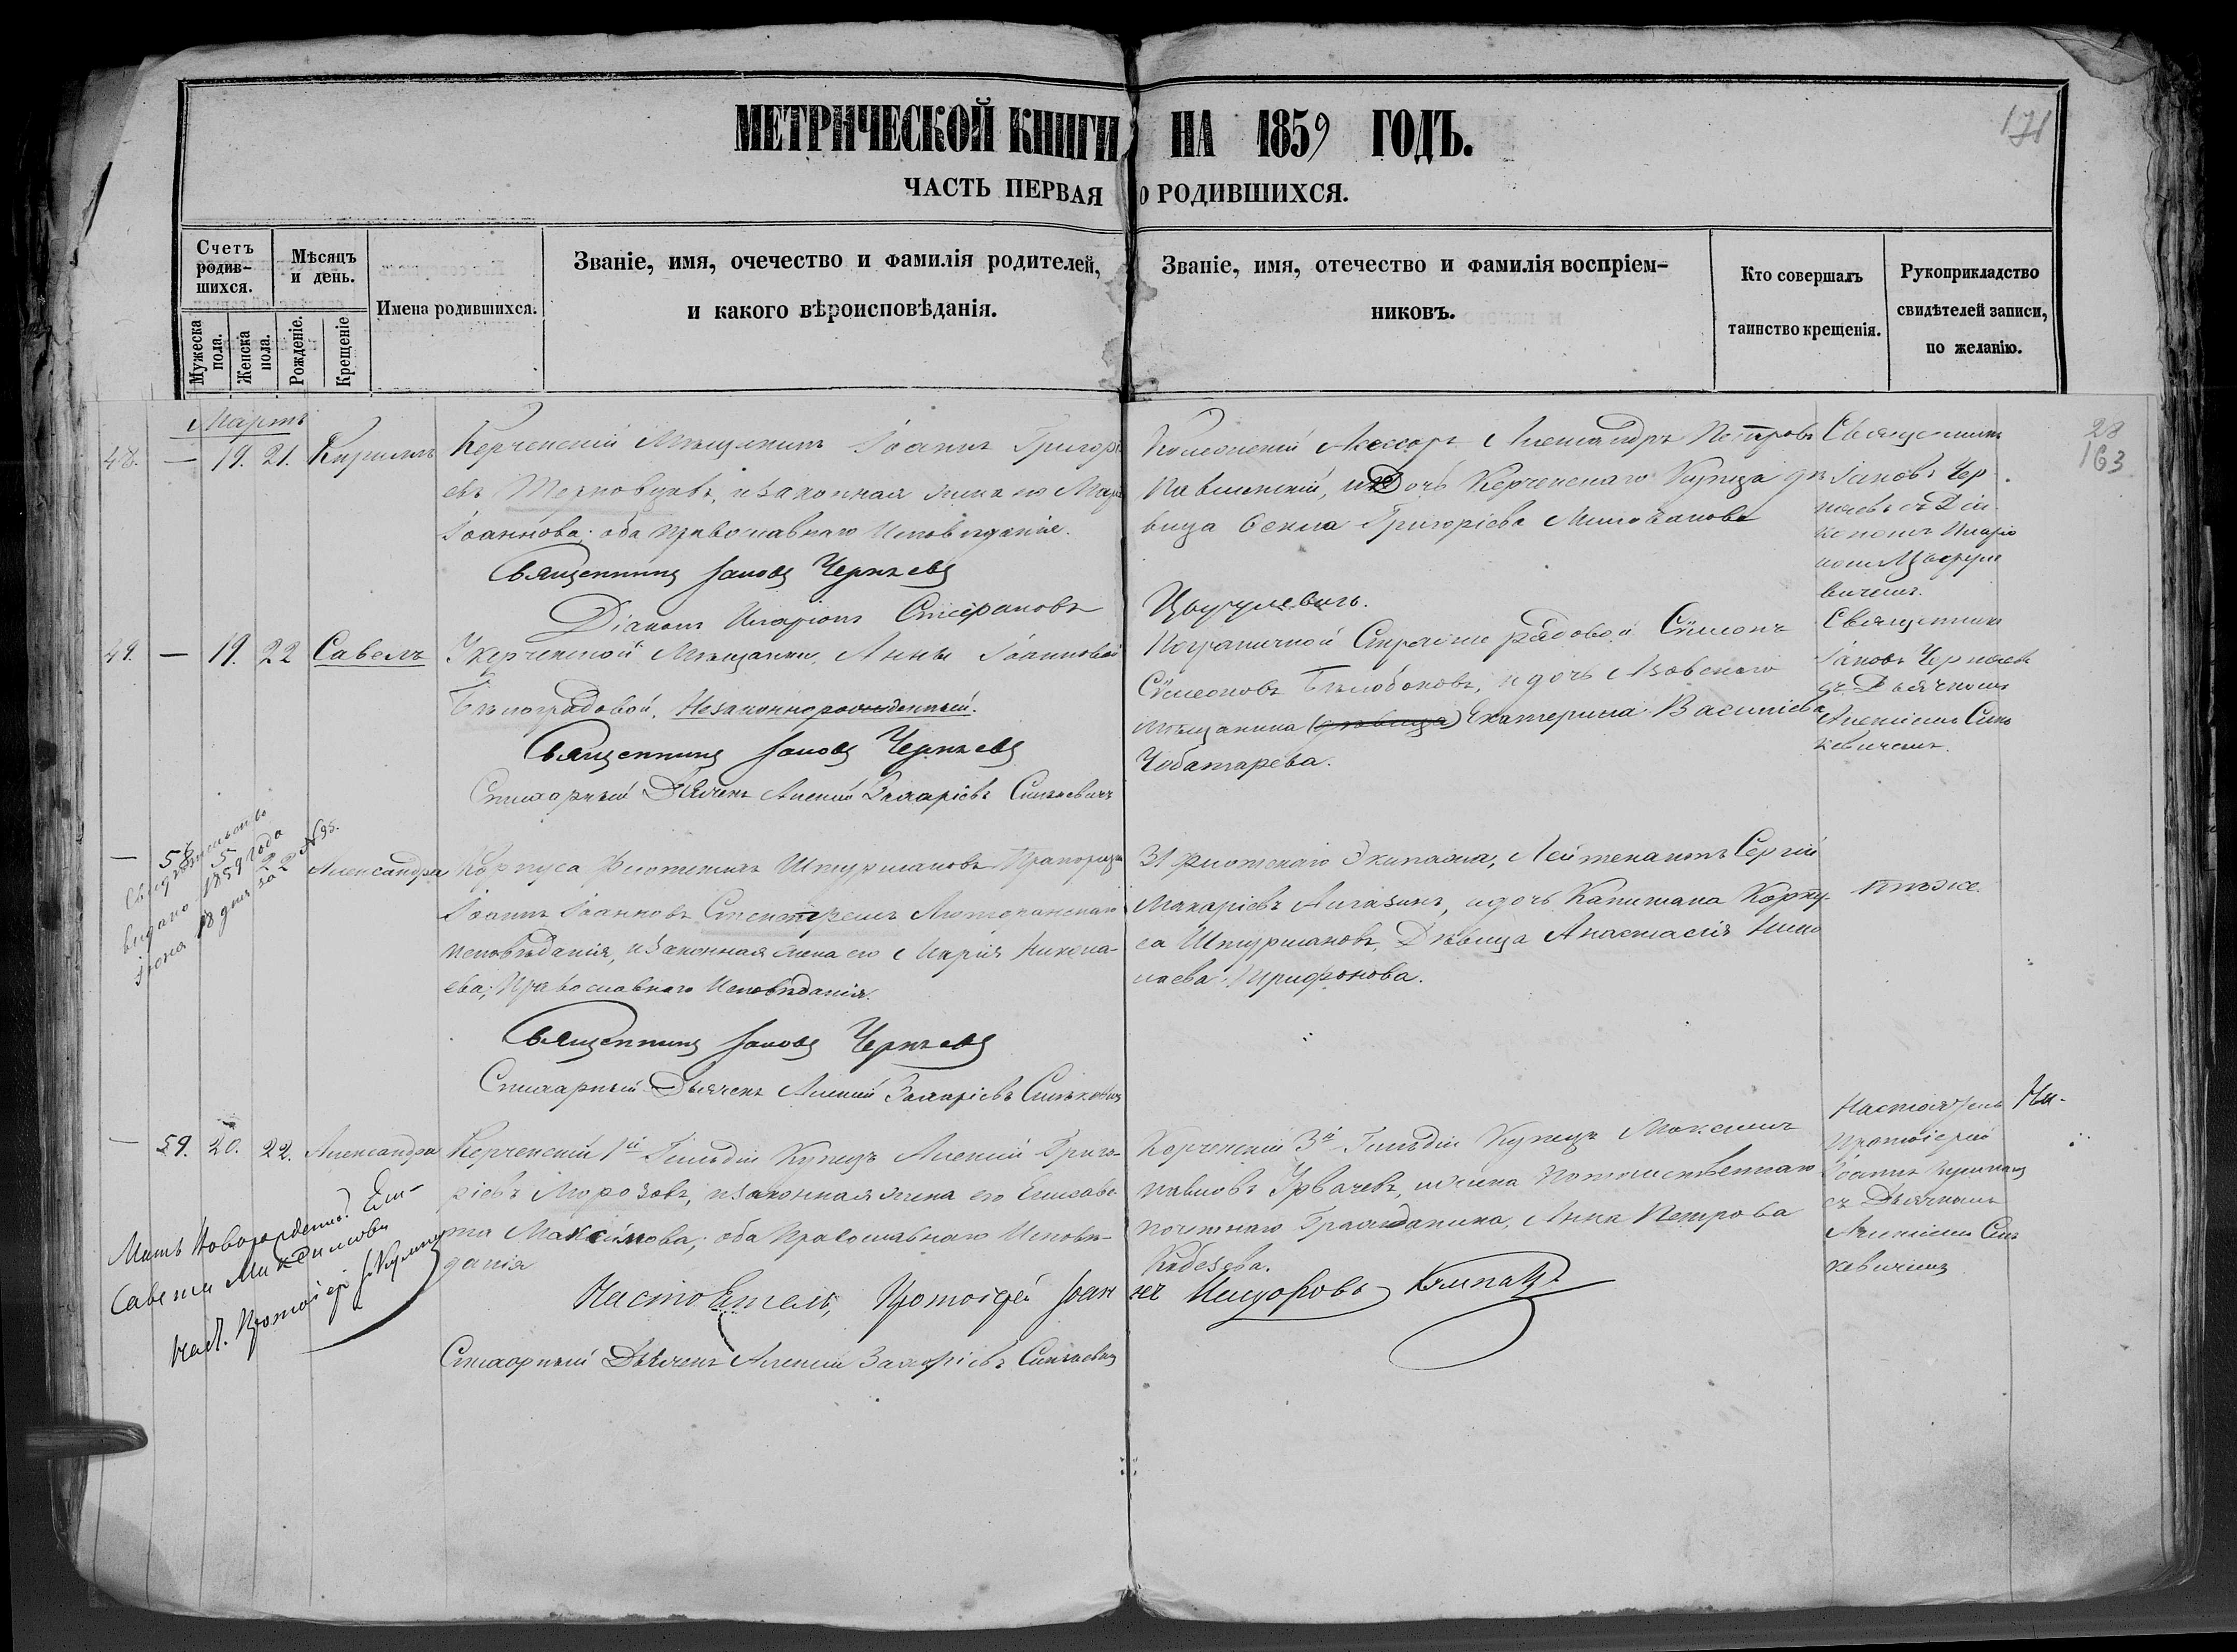 МЕТРИЧЕСКОЙ КНИГИ НА 1859 ГОДЪ.
171
ЧАСТЬ ПЕРВАЯ О РОДИВШИХСЯ.
Счетъ родив-шихся.
Мужеска пола.
Женска пола.
Мѣсяцъ и день.
Рожденіе.
Крещеніе
Имена родившихся.
Званіе, имя, очечество и фамилія родителей,
и какого вѣроисповѣданія.
Званіе, имя, отечество и фамилія воспріем-
никовъ.
Кто совершалъ
таинство крещенія.
Рукоприкладство
свидѣтелей записи,
по желанію.
28
163
Мартъ
48. — 19. 21. Кириллъ
Керченскій Мѣщанинъ Іоаннъ Григорь
евъ и законная жена его Марія
Іоаннова; оба православнаго Исповѣданія.
Священникъ Іаковъ Чернѣевъ
Діаконъ Иларіонъ Стефановъ
Цвуулевичъ.
Коллежскій Ассесоръ Александръ Петровъ
Павловскій, и Дочь Керченскаго Купца дѣ
вица Григоріева
Священникъ
Іаковъ Чер
нѣевъ съ Дія
кономъ Иларіо
номъ
вичемъ.
49. — 19. 22 Савелъ
У керченской Мѣщанки, Анны Іоанновой
Бѣлоградовой, Незаконнорожденный.
Священникъ Іаковъ Чернѣевъ
Стихарный Дьячекъ Алексій Захаріевъ Синькевичъ
Пограничной Стражи рядовой Сѵмеонъ
Сѵмеоновъ Бѣлобоковъ, и дочь Азовскаго
мѣщанина (дѣвица) Екатерина Васильева
Чеботарева.
Священникъ
Іаковъ Чернѣевъ
съ Дьячкомъ
Алексіемъ Синь
кевичемъ.
— 58 5 22 Александра
Свидѣтельство
выдано 1859 года
Іюня 18 дня за № 95.
Корпуса Флотскихъ Штурмановъ Прапорщикъ
Іоаннъ Іоанновъ Лютеранскаго
исповѣданія, и законная жена его Марія Никола-
ева; Православнаго Исповѣданія.
Священникъ Іаковъ Чернѣевъ
Стихарный Дьячекъ Алексій Захаріевъ Синькевичъ
31 флотскаго Экипажа, Лейтенантъ Сергій
Макаріевъ Алгазинъ, и дочь Капитана Корпу-
са Штурмановъ, Дѣвица Анастасія Нико
лаева Трифонова.
тѣже.
— 59. 20. 22. Александра
Мать Новорожденной Ели-
савета Максимова
Наст. Протоіерей І. Кумпанъ
Керченскій 1й Гильдіи Купецъ Алексій Григо-
ріевъ Морозовъ, и законная жена его Елисаве
та Максимова; оба Православнаго Исповѣ-
данія
Настоятель, Протоіерей Іоан
нъ
Стихарный Дьячекъ Алексій Захаріевъ Синькевичъ
Керченскій 3й Гильдіи Купецъ Максимъ
Павловъ и жена Потомственнаго
почетнаго Гражданина, Анна Петрова
Настоятель
Протоіерей
Іоаннъ
съ Дьячкомъ
Алексіемъ Синь
кевичемъ